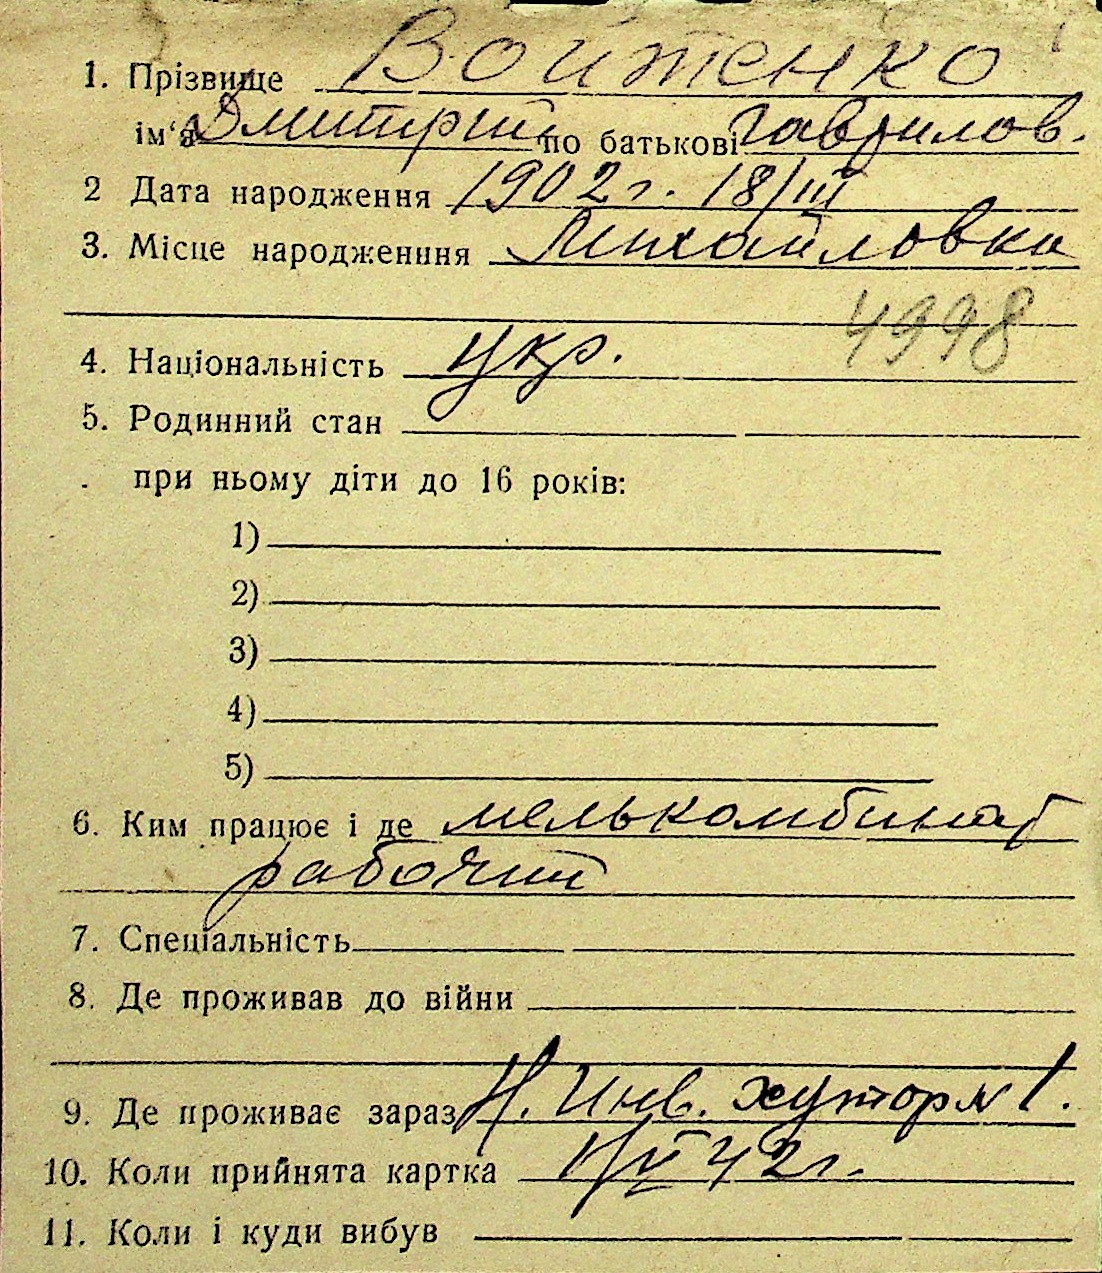 1. Прізвище Войтенко
ім‘я Дмитрий по батькові Гаврилов.
2 Дата народження 1902 г. 18/III
3. Місце народженння Михайловка
4998
4. Національність укр.
5. Родинний стан
при ньому діти до 16 років:
1)
2)
3)
4)
5)
6. Ким працює і де мелькомбинат
рабочий
7. Спеціальність
8. Де проживав до війни
9. Де проживає зараз Н. Инв. хутор № 1.
10. Коли прийнята картка 42 г.
11. Коли і куди вибув